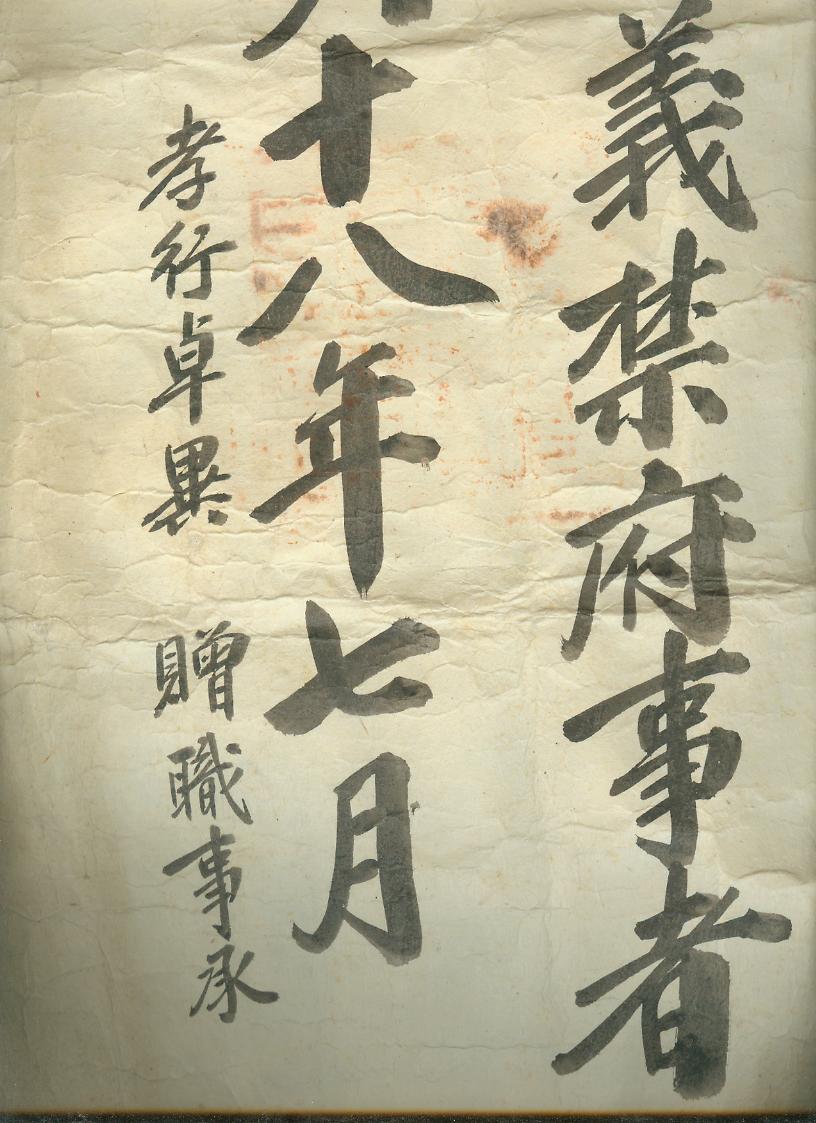 義禁府事者
十八年七月
孝行卓異 贈職事承